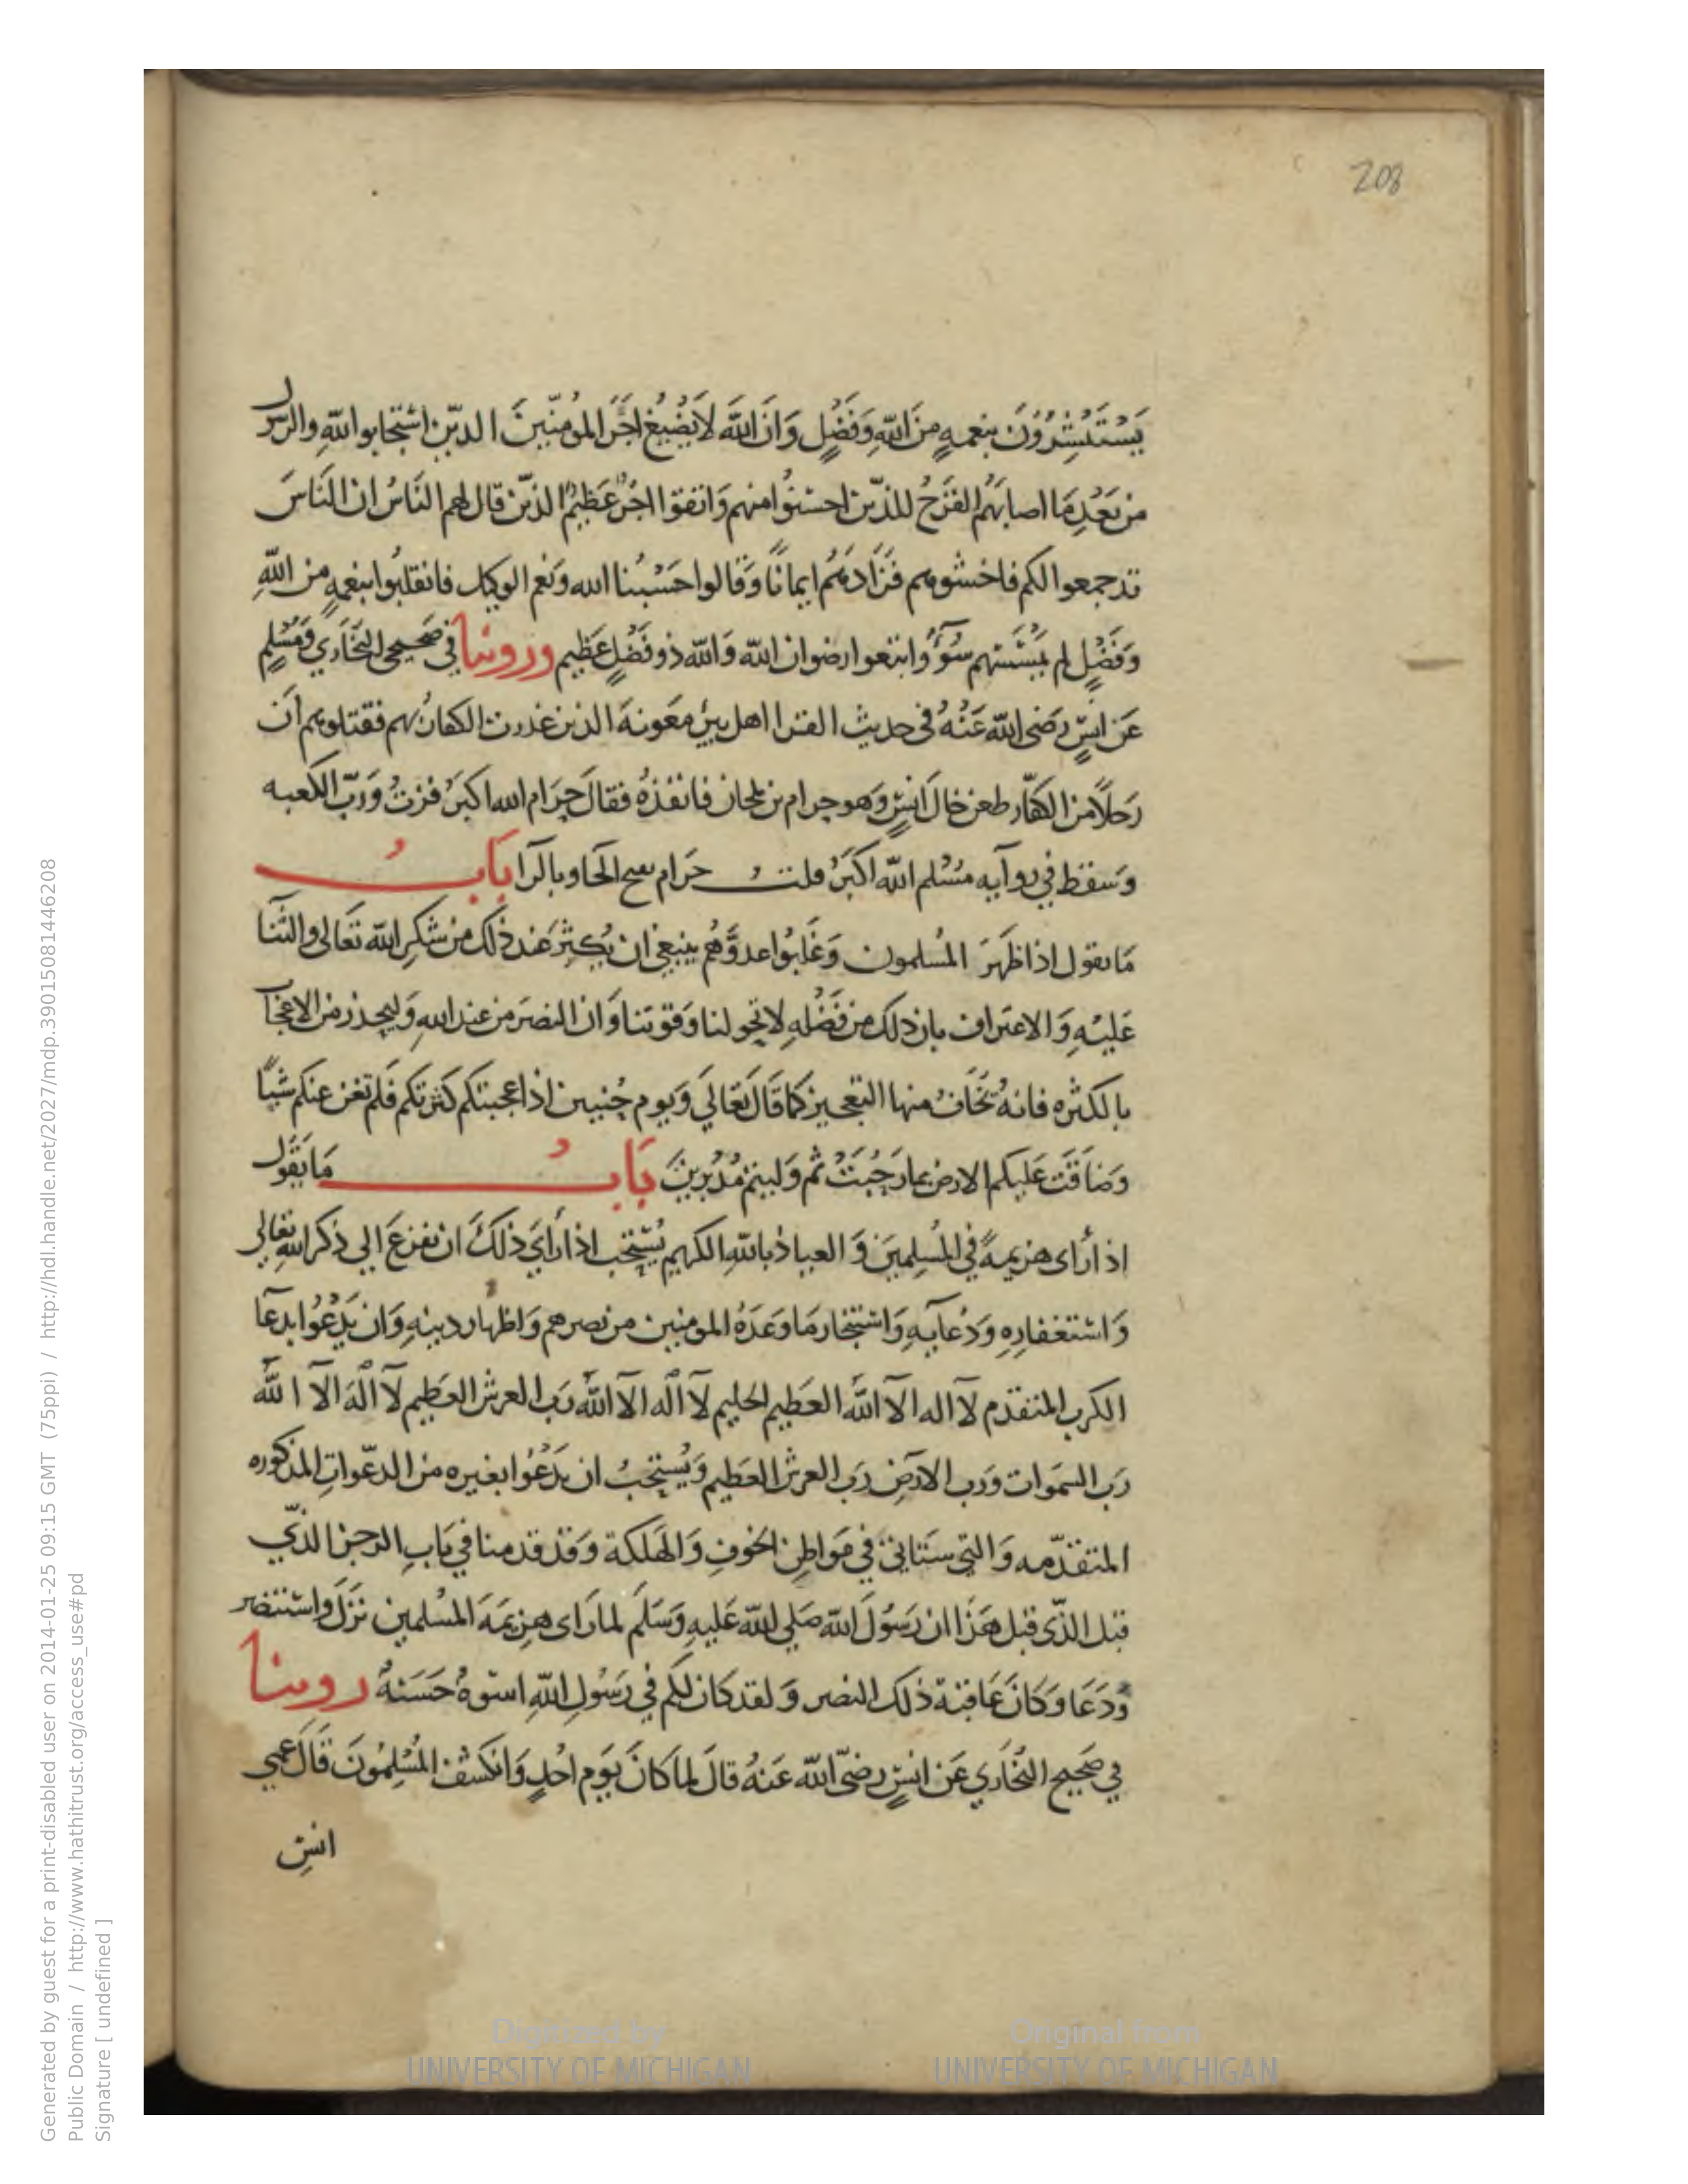 208
يَسْتَبْشِرُوْنَ بنعمهٍ مِنَ اللّهِ وَفَضْلٍ وَاَن اللّهَ لاَ يُضِيعُ اَجْرَ المؤمنِينَ الذين استجابوا للّهِ والرسول
من بَعْدِ مَا اصابَهُم القَرْحُ للذين احسَنُوا منهم وَاتقوا اجْرٌ عَظيمٌ الذين قال لهم النَاسُ ان النَاسَ
قد جمعوا لكم فاخشوهم فَزَادَهُم ايمانًا وَقالوا حَسْبُنا الله وَنعم الوكيل فانقلبُوا بنعمهٍ من اللّهِ
وَفَضْلٍ لم يَمْسَسْهم سُوءٌ وَاتبعوا رضوان اللّه وَاللّه ذو فَضْلٍ عَظيم وروينا في صَحيحي البُخَاري وَمُسْلم
عَن انسٍ رَضي اللّه عَنْهُ في حديث القرا اهل بير مَعونهَ الذين غدرت الكفارُ بهم فقتلوهم اَن
رَجلاً من الكفّار طعن خالَ انسٍ وَهو حرام بن ملحان فانفذهُ فقالَ حَرَام الله اكبرُ فزتُ وَرَبّ الكعبه
وَسقط في روآيه مُسْلم اللّه اكبَرُ قلت حَرَام بفتح الحَا وبالرَا بَابُ
مَا يقول اذا ظهَرَ المُسلمون وَغَلَبُوا عدوَّهُم ينبغي ان يُكثِرَ عند ذلك من شكرِ اللّه تعَالى والثنَا
عَليْهِ وَالاعتراف بان ذلك من فَضْلهِ لا بحولنا وَقوتنا وَان النصَر من عند اللهِ وَليحذر من الاعجاب
بالكثره فانهُ يُخَافُ منها التعجيز كما قَالَ تَعَالَي وَيوم حُنين اذ اعجبتكم كثرتكم فَلم تغن عنكم شيًا
وَضاقَت عَليكم الارض بما رَحُبَتْ ثم وَليتم مُدْبرينَ بَابُ مَا يَقُول
اذا رُاى هزيمهً في المُسلمينَ وَ العياذ باللّهِ الكريم يُسْتحَب اذا رَايَ ذلكَ ان يفزعَ الي ذكر اللّهِ تعالى
وَاستغفارِه وَدُعآيهِ وَاستنجاز مَا وَعَدَهُ المومنين من نصرهم وَاظهار دينهِ وَان يَدْعُوَا بدعآ
الكرب المتقدم لآ اله الآ اللّه العظيم الحليم لآ اله الآ اللّه رَب العرش العَظيم لآ اله الآ اللّه
رَب السمَوات وَرَب الارَض رَب العرش العَظيم وَيُستحَبُ ان يَدْعُوَا بغيره من الدعَواتِ المذكوره
المتقدّمه وَالتي ستاتي في مَواطن الخوفِ وَالهَلكة وَقد قدمنا في بَابِ الرجز الذي
قبل الذّى قبل هَذَا ان رَسُولَ اللّه صَلى اللّه عَليهِ وَسَلم لما رَاى هزيمَهَ المسْلمين نزَلَ وَاستنصَر
وَدَعَا وَكانَ عَاقبَة ذلك النصر وَ لقد كان لكم في رَسُول اللّهِ اسوهٌ حَسَنهٌ روينا
في صَحيح البُخَاري عَن انسٍ رَضي اللّه عَنهُ قالَ لما كانَ يَوم احُدٍ وَانكشفَ المُسْلِمُونَ قَالَ عمي
انس
Generated by guest for a print-disabled user on 2014-01-25 09:15 GMT (75ppi) / http://hdl.handle.net/2027/mdp.39015081446208
Public Domain / http://www.hathitrust.org/access_use#pd
Signature [ undefined ]
Digitized by
UNIVERSITY OF MICHIGAN
Original from
UNIVERSITY OF MICHIGAN